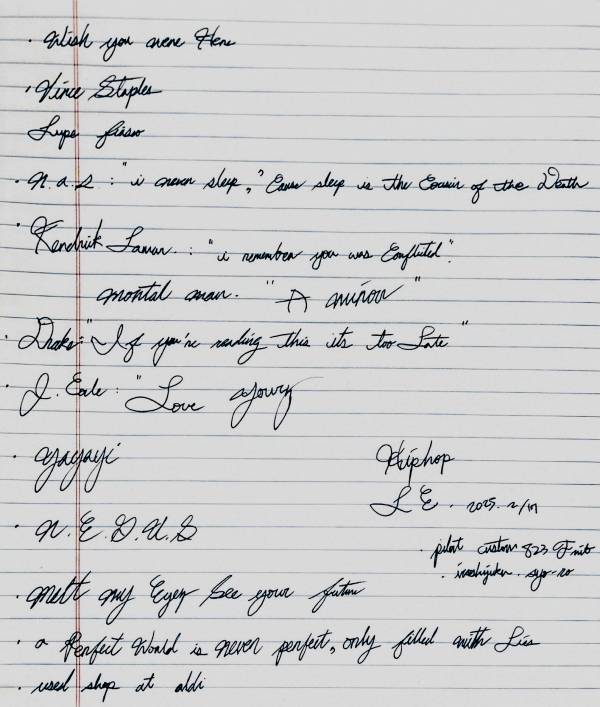 · Wish you were Here
· Vince Staples
Lupe fiasco
· N.a.s : "i never sleep," Cause sleep is the Cousin of the Death
· Kendrick Lamar. : "i remember you was Conflicted".
mortal man. "A minor"
· Drake: "If you're reading this its too Late"
· J. Cole : "Love yourz
·
· N.E.G.U.S
· Melt my Eyez See your future
· a Perfect World is never perfect, only filled with Lies
· used shop at aldi
Hiphop
L E . 2025. 2/17
· pilot custom 823 F nib
· iroshizuku.